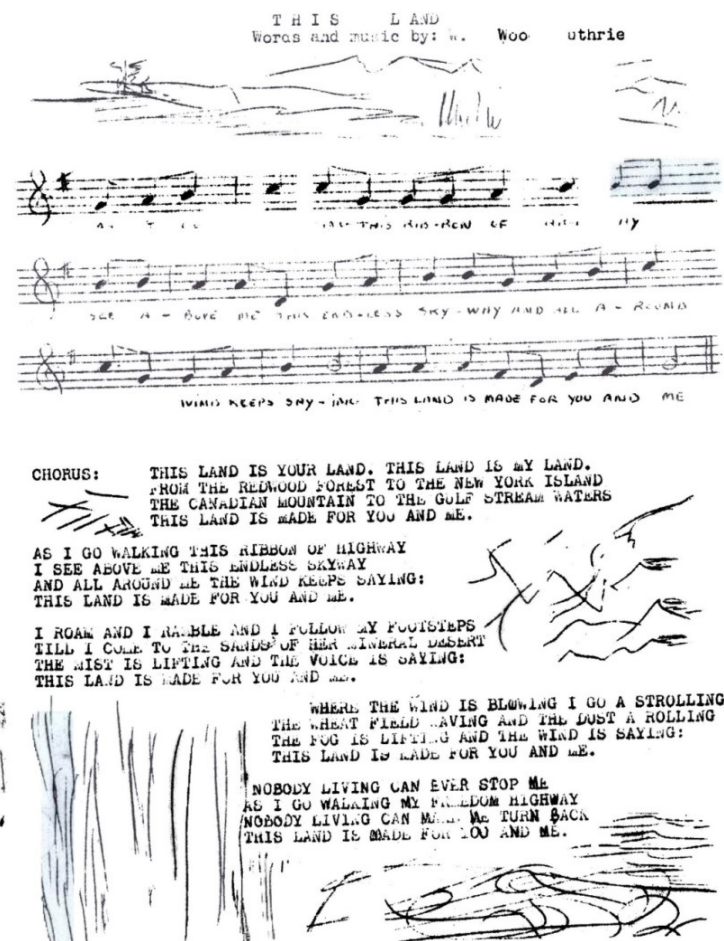 THIS LAND
Words and music by: W. Woo uthrie
THIS RIB-BEN OF HY
SEE A - BOVE ME THIS END-LESS SKY-WAY AND ALL A - ROUND
WIND KEEPS SAY-ING THIS LAND IS MADE FOR YOU AND ME
CHORUS: THIS LAND IS YOUR LAND. THIS LAND IS MY LAND.
FROM THE REDWOOD FOREST TO THE NEW YORK ISLAND
THE CANADIAN MOUNTAIN TO THE GULF STREAM WATERS
THIS LAND IS MADE FOR YOU AND ME.
AS I GO WALKING THIS RIBBON OF HIGHWAY
I SEE ABOVE ME THIS ENDLESS SKYWAY
AND ALL AROUND ME THE WIND KEEPS SAYING:
THIS LAND IS MADE FOR YOU AND ME.
I ROAM AND I RAMBLE AND I FOLLOW MY FOOTSTEPS
TILL I COME TO THE SANDS OF HER MINERAL DESERT
THE MIST IS LIFTING AND THE VOICE IS SAYING:
THIS LAND IS MADE FOR YOU AND ME.
WHERE THE WIND IS BLOWING I GO A STROLLING
THE WHEAT FIELD WAVING AND THE DUST A ROLLING
THE FOG IS LIFTING AND THE WIND IS SAYING:
THIS LAND IS MADE FOR YOU AND ME.
NOBODY LIVING CAN EVER STOP ME
AS I GO WALKING MY FREEDOM HIGHWAY
NOBODY LIVING CAN MAKE ME TURN BACK
THIS LAND IS MADE FOR YOU AND ME.